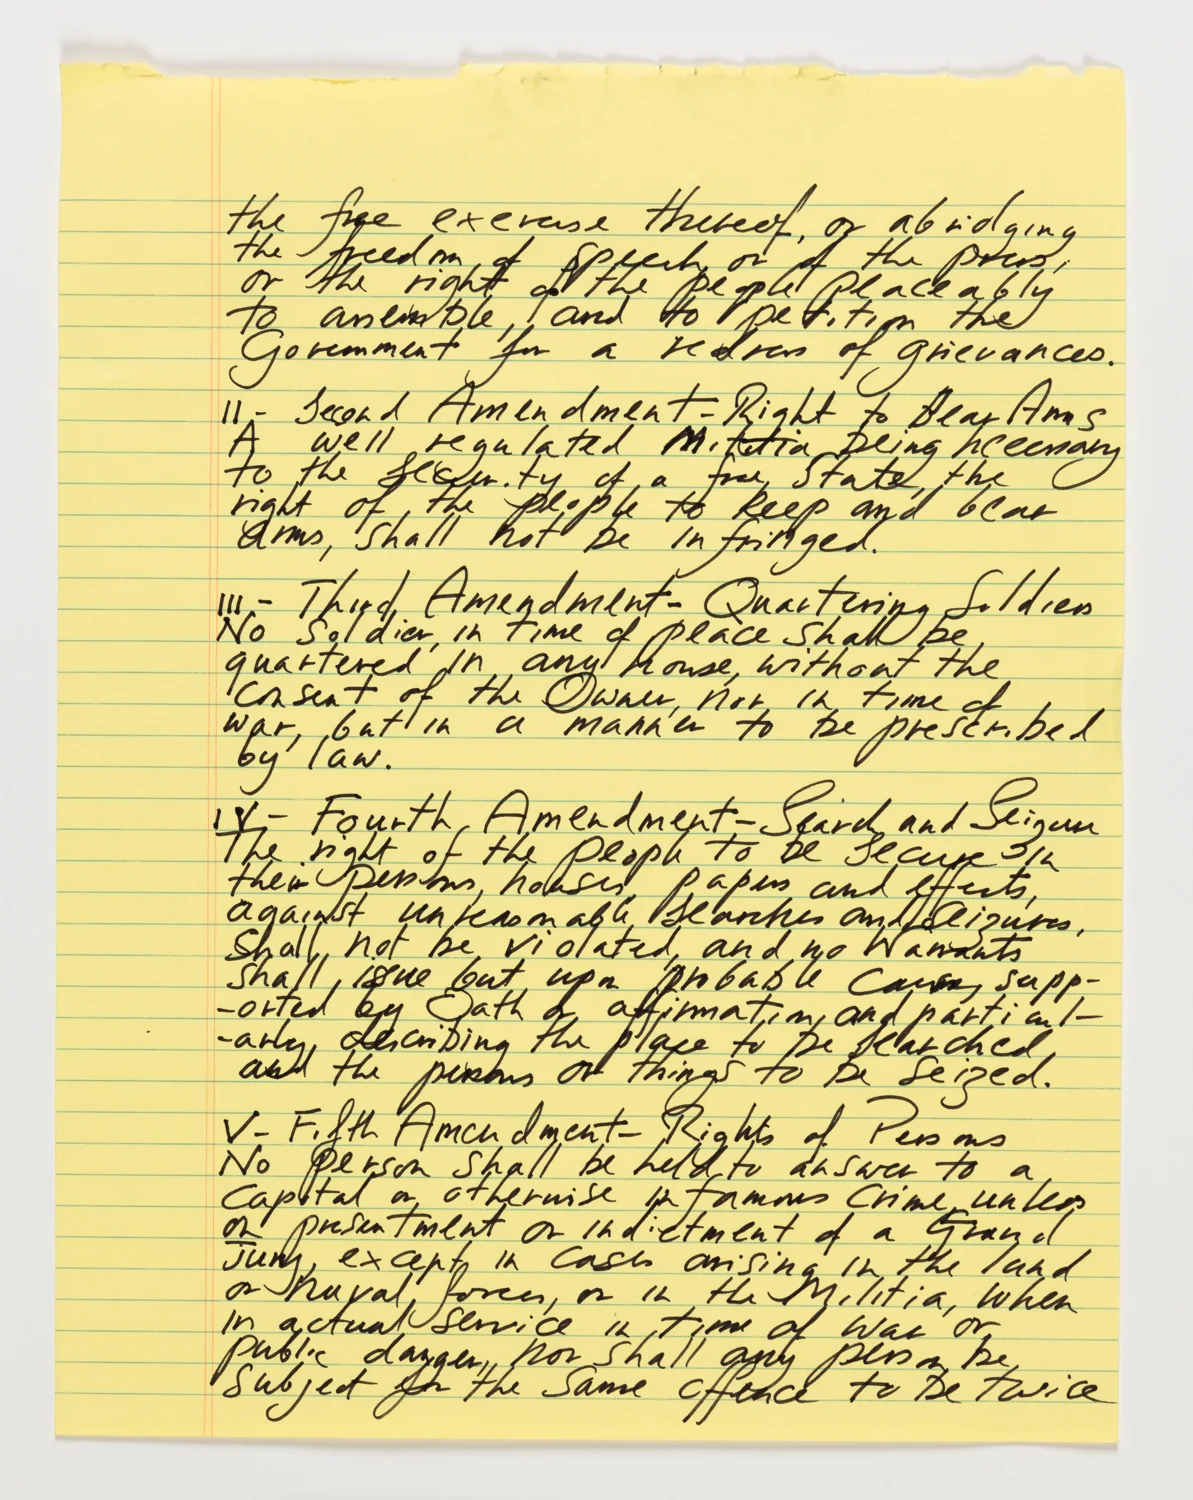 the free exercise thereof, or abridging
the freedom of speech, or of the press,
or the right of the people peaceably
to assemble, and to petition the
Government for a redress of grievances.
II- Second Amendment- Right to Bear Arms
A well regulated Militia being necessary
to the security of a free State, the
right of the people to keep and bear
arms, shall not be infringed.
III- Third Amendment- Quartering Soldiers
No soldier, in time of peace shall be
quartered in any house, without the
consent of the Owner, nor in time of
war, but in a manner to be prescribed
by law.
IV- Fourth Amendment- Search and Seizure
The right of the people to be secure in
their persons, houses, papers and effects,
against unreasonable searches and seizures,
shall not be violated, and no Warrants
shall issue but upon probable cause, supp-
-orted by Oath or affirmation, and particul-
-arly describing the place to be searched,
and the persons or things to be seized.
V- Fifth Amendment- Rights of Persons
No person shall be held to answer to a
capital or otherwise infamous crime, unless
on presentment or indictment of a Grand
Jury, except in cases arising in the land
or Naval forces, or in the Militia, when
in actual service in time of war or
public danger, nor shall any person be
subject for the same offence to be twice